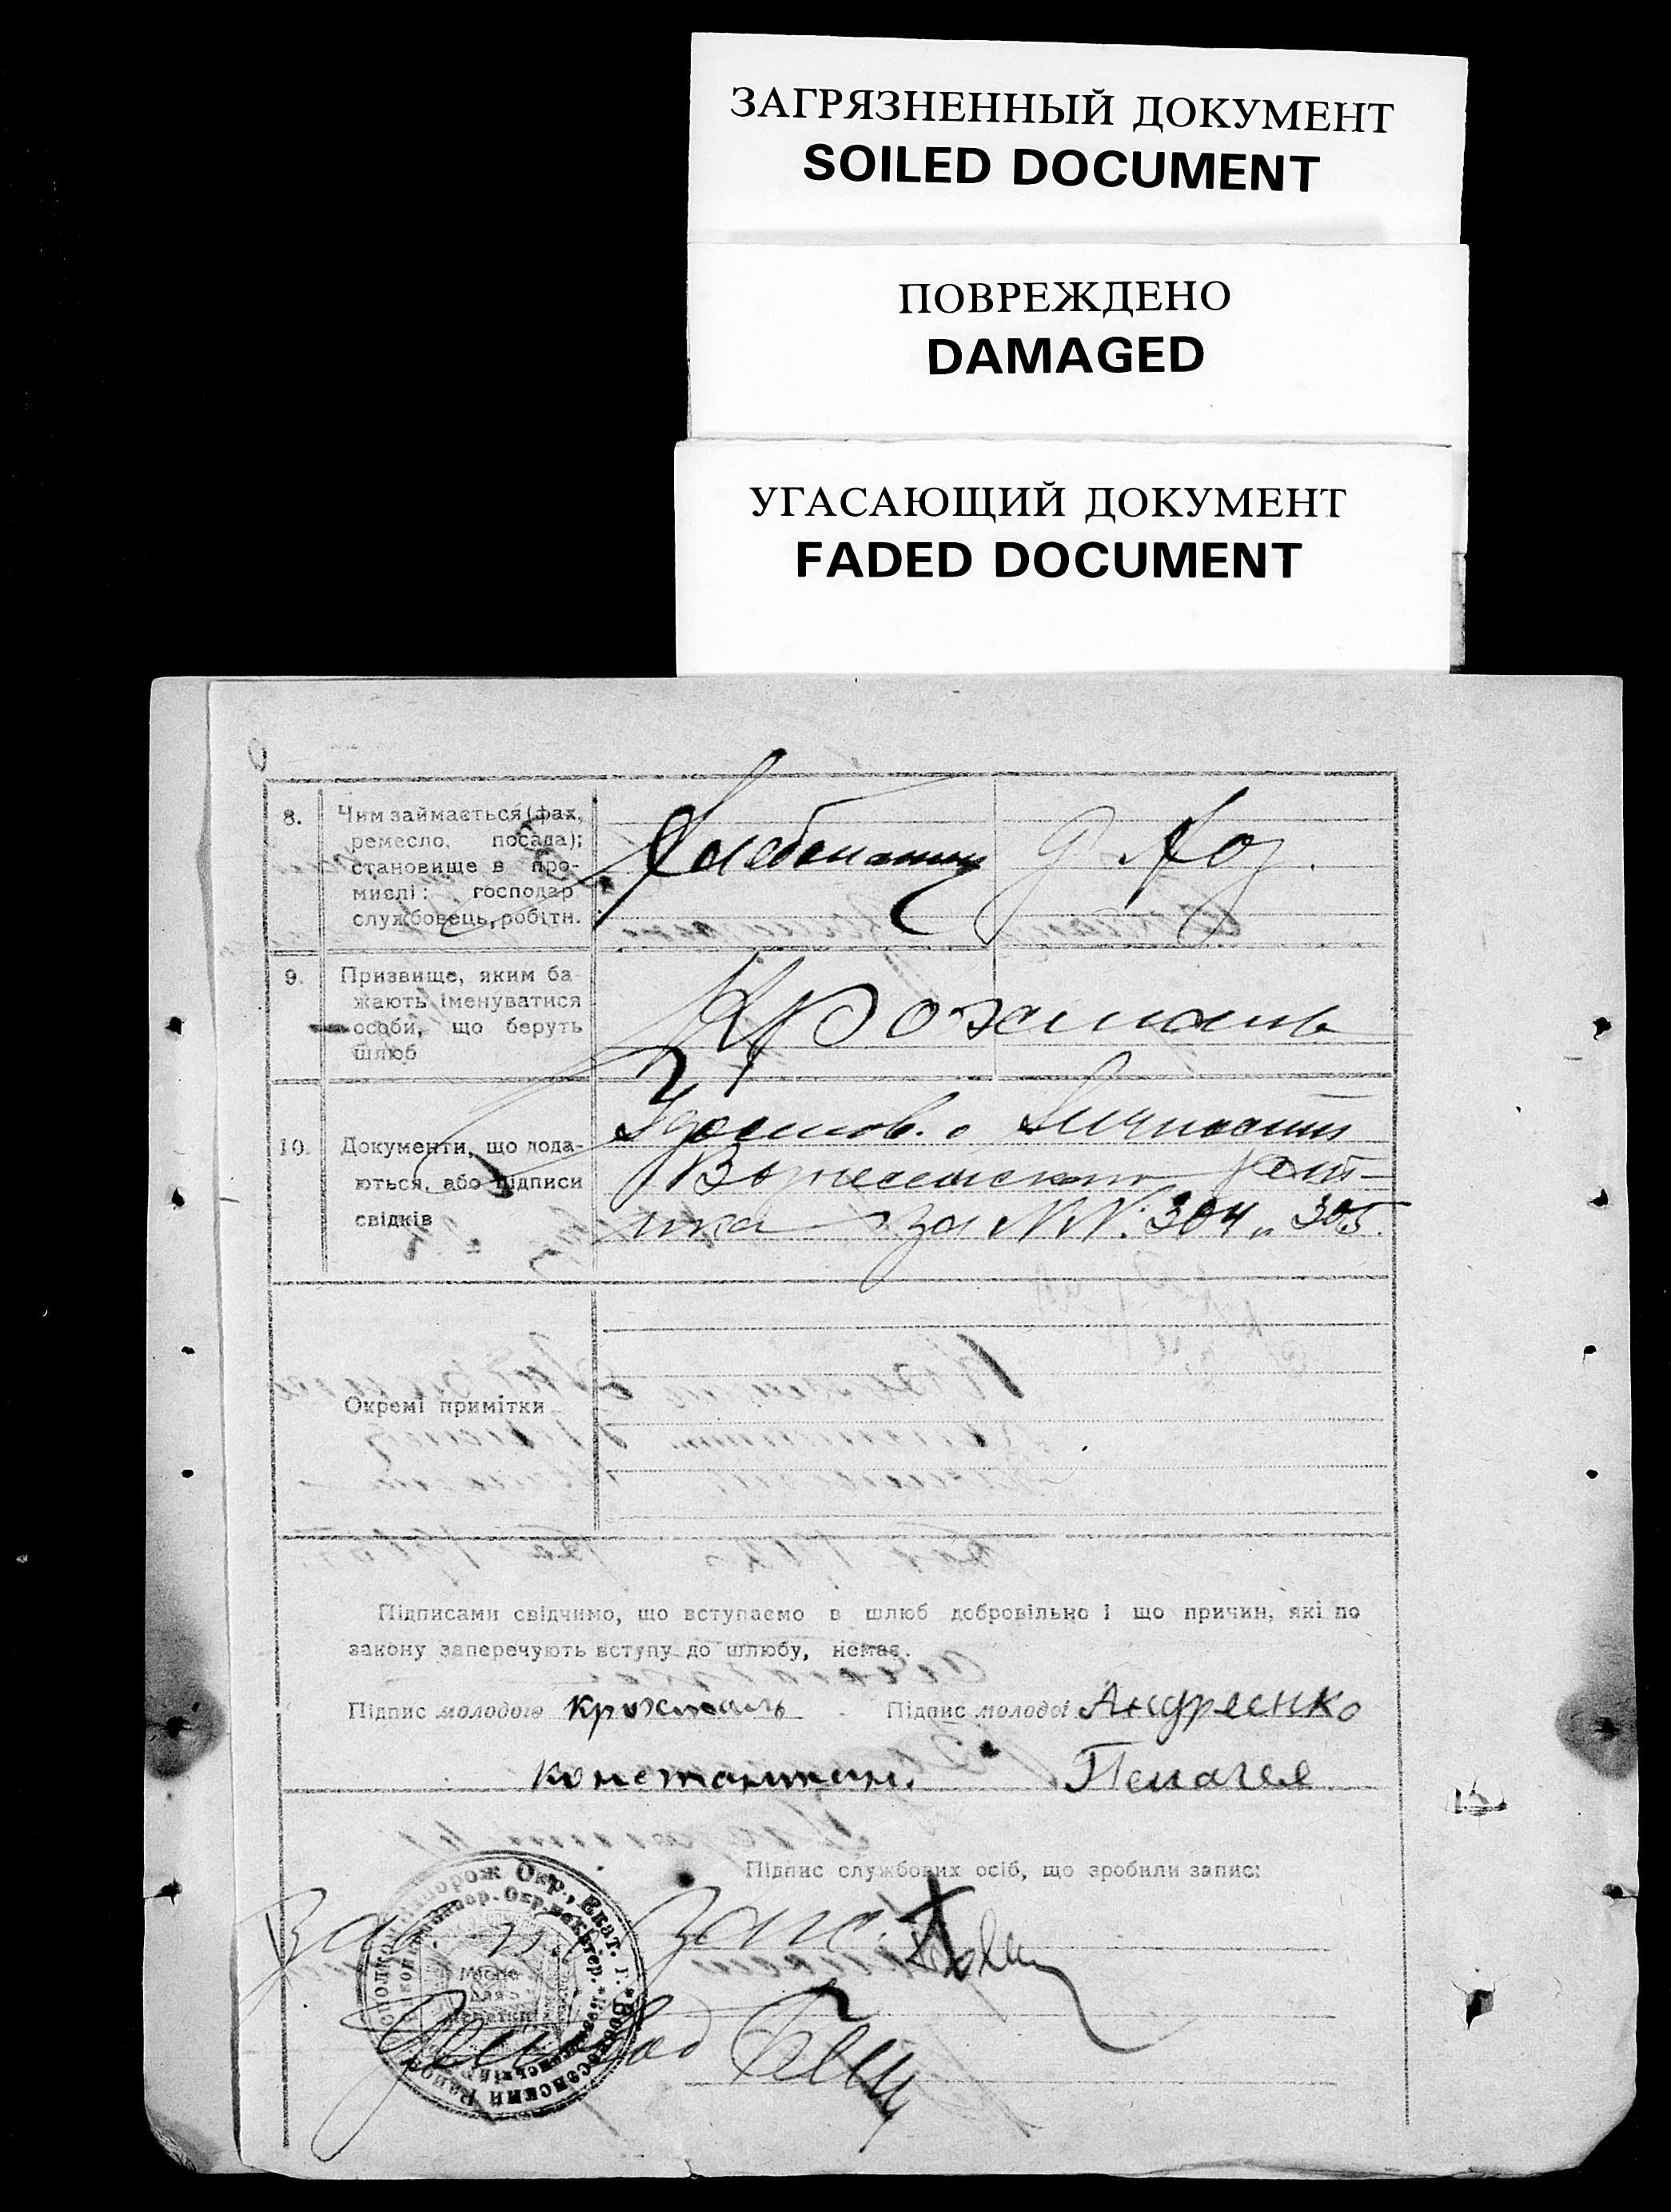 ЗАГРЯЗНЕННЫЙ ДОКУМЕНТ
SOILED DOCUMENT
ПОВРЕЖДЕНО
DAMAGED
УГАСАЮЩИЙ ДОКУМЕНТ
FADED DOCUMENT
8. Чим займається (фах,
ремесло, посада);
становище в про-
мислі: господар
службовець, робітн.
Хлебопашец
Д. Хоз.
9. Призвище, яким ба-
жають іменуватися
особи, що беруть
шлюб
Крохмаль
10. Документи, що дода-
ються, або підписи
свідків
Удостов. о Личности
за NN: 304 и 305.
Окремі примітки
Підписами свідчимо, що вступаємо в шлюб добровільно і що причин, які по
закону заперечують вступу до шлюбу, немає.
Підпис молодого крохмаль Підпис молодої Андреенко
константин. Пелагея
Підпис службових осіб, що зробили запис:
Зав. п/о Запс.